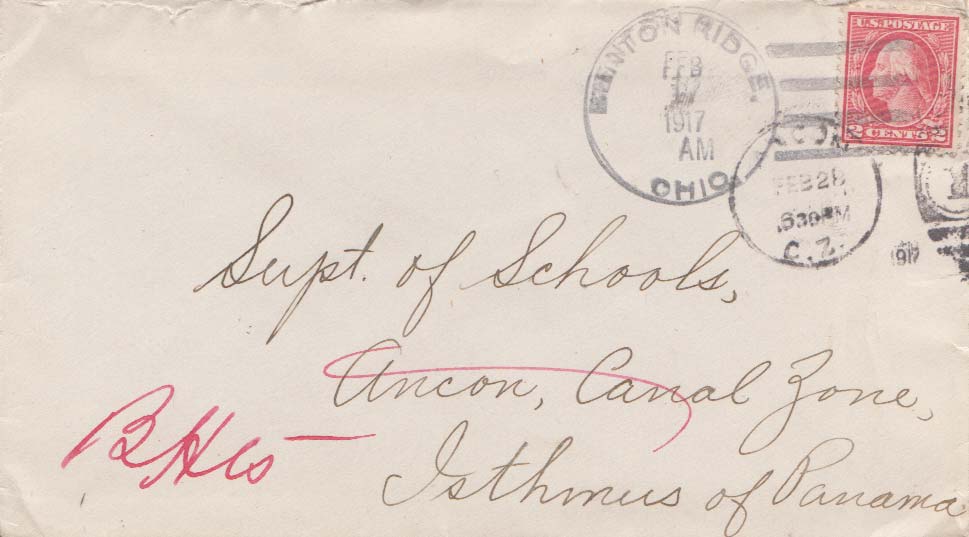 BENTON RIDGE.
FEB
17
1917
AM
OHIO.
U.S. POSTAGE
2 CENTS 2
FEB 28
630 PM
C.Z.
1917
Supt. of Schools,
Ancon, Canal Zone,
Isthmus of Panama
B Hts